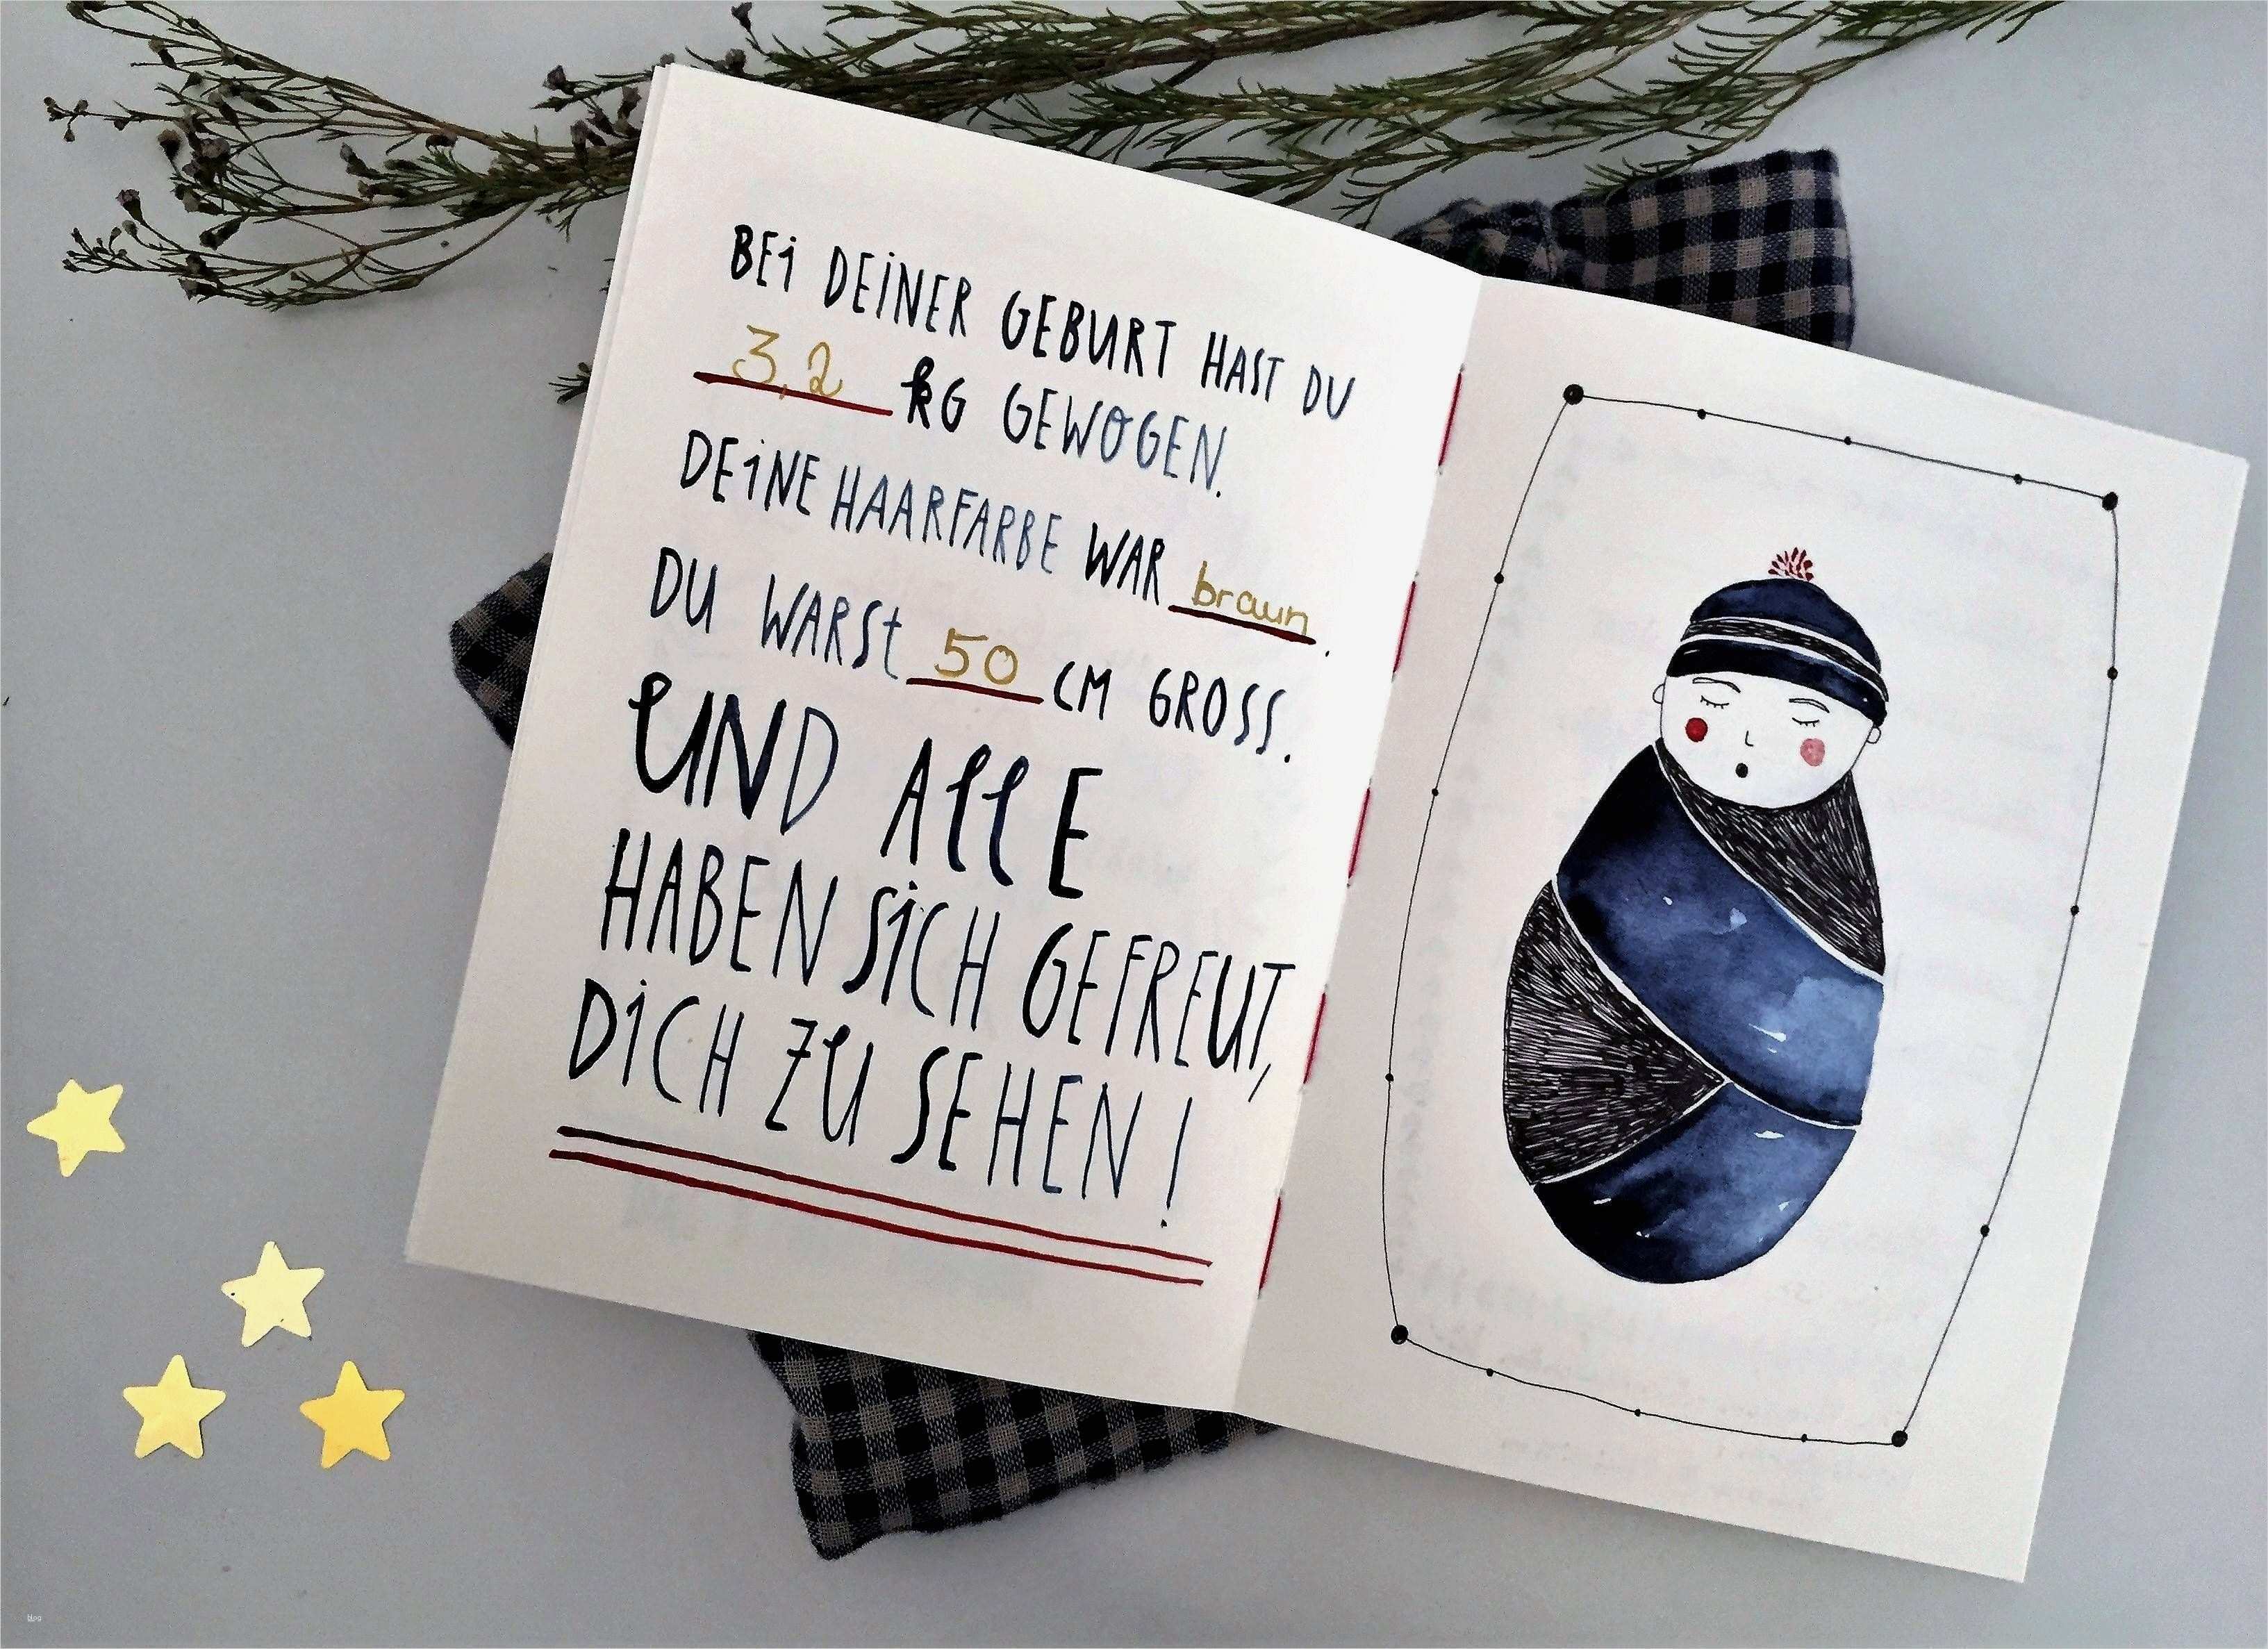 BEI DEINER GEBURT HAST DU
3,2 KG GEWOGEN.
DEINE HAARFARBE WAR braun.
DU WARST 50 CM GROSS.
UND ALLE
HABEN SICH GEFREUT,
DICH ZU SEHEN!
blog